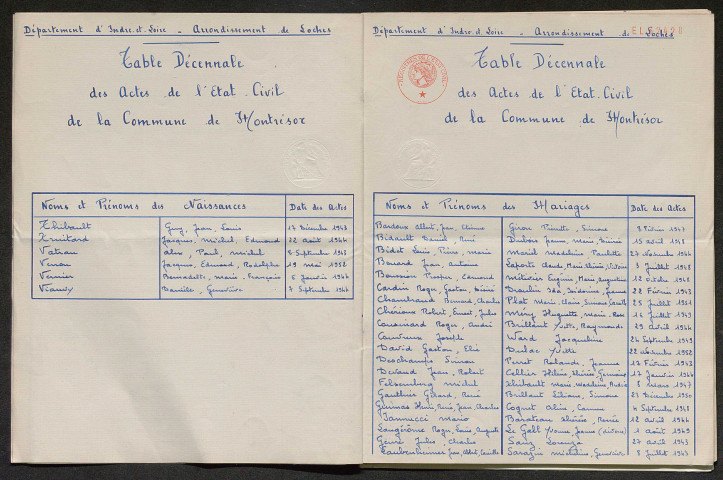 Département d'Indre et Loire - Arrondissement de Loches
Table Décennale
des Actes de l'Etat-Civil
de la Commune de Montrésor
Noms et Prénoms des Naissances Date des Actes
Thibault Guy, Jean, Louis 17 Décembre 1943
Jacques, Michel, Edmond 22 août 1944
Paul, Michel 8 Septembre 1948
Jacques, Edmond, Rodolphe 19 mai 1952
Vernier Bernadette, Marie, Françoise 6 Janvier 1946
Danièle, Geneviève 7 Septembre 1946
Département d'Indre et Loire - Arrondissement de Loches
Table Décennale
des Actes de l'Etat-Civil
de la Commune de Montrésor
Noms et Prénoms des Mariages Date des Actes
Bardoux Albert, Jean, Etienne Giron Pierrette, Simone 3 Février 1947
Bidault René Dubois Jeanne, Marie, 15 avril 1948
Bidet Louis, Pierre, Marie Madeleine, Paulette 27 Novembre 1946
Jean, Antoine Laporte Claude, Marie 3 Juillet 1948
Prosper, Edmond Eugénie, Marie, Augustine 12 Octobre 1948
Cardoin Roger, Gaston, Ida, Isidorine, Jeanne 22 Février 1943
Chambraud Bernard, Charles Plat Marie, Claire, Simone 25 Juillet 1951
Chérioux Robert, Ernest, Jules Méry Huguette, Marie, Rose 16 Juillet 1949
Roger, André Brillant Yvette, Raymonde 29 avril 1944
Joseph Ward Jacqueline 24 Septembre 1949
David Gaston, Elie Dulac Yvette 22 Novembre 1952
Deschamps Simon Perret Rolande, Jeanne 17 Février 1943
Devaud Jean, Robert Cellier Hélène, Thérèse, Germaine 17 Janvier 1944
Felsenberg Michel Thibault Marie, Madeleine, Andrée 8 mars 1947
Gauthier Gérard, René Brillant Liliane, Simone 27 Décembre 1950
Henri, René, Jean, Charles Coquet Aline, Carmen 4 Septembre 1948
Iannucci Mario Barateau Thérèse, Renée 12 avril 1944
Langérôme Roger, Louis, Auguste Le Gall Yvonne, Jeanne (divorcée) 1 août 1949
Jules, Charles Sanz Lorenza 27 avril 1943
Laubenheimer Jean, Albert, Camille Sarazin Micheline, Geneviève 8 Juillet 1943